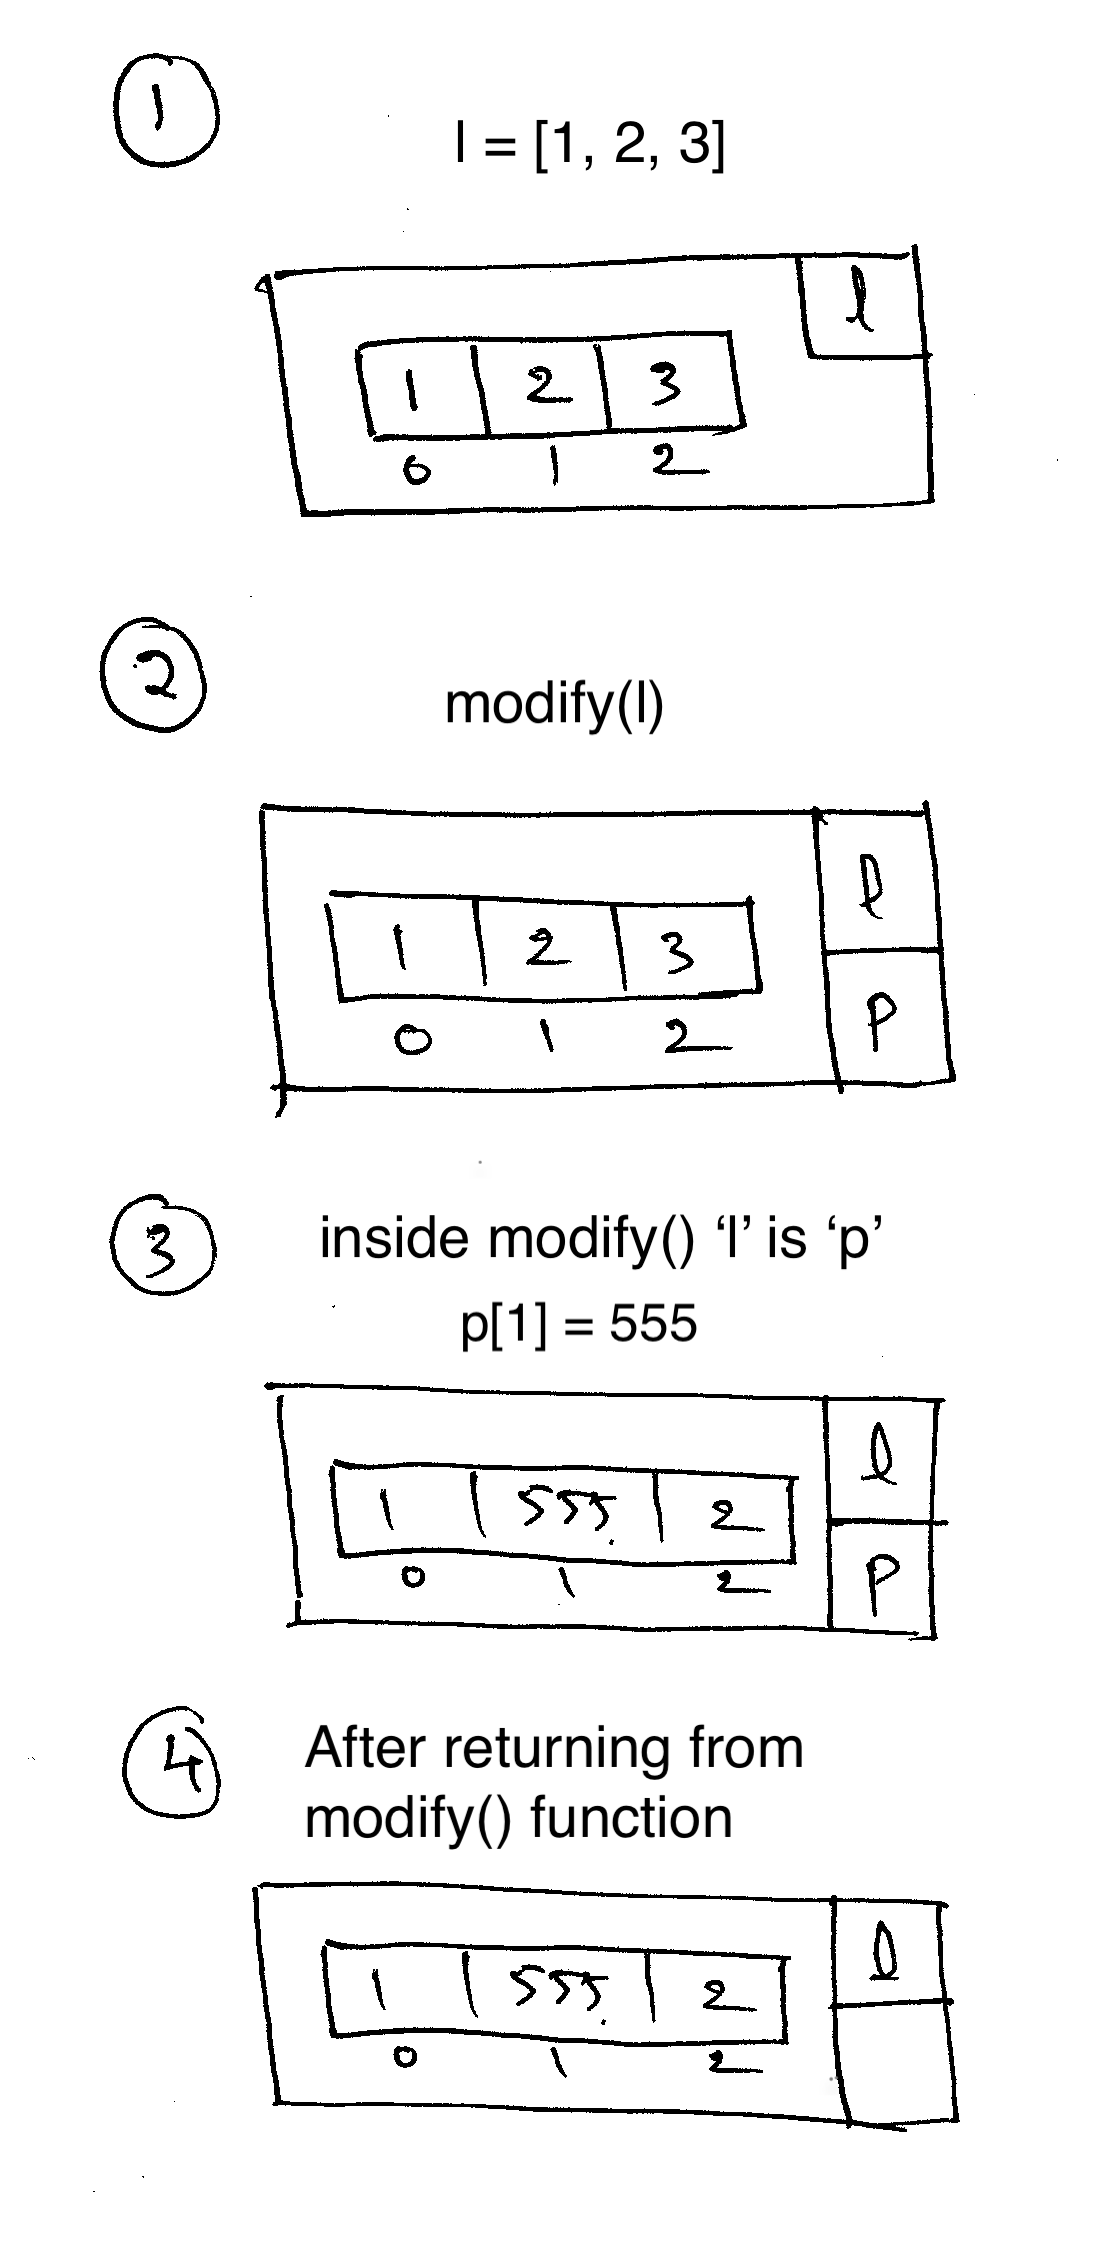 1
l = [1, 2, 3]
l
1 2 3
0 1 2
2
modify(l)
l
1 2 3
p
0 1 2
3
inside modify() ‘l’ is ‘p’
p[1] = 555
l
1 555 2
0 1 2
p
4
After returning from
modify() function
l
1 555 2
0 1 2